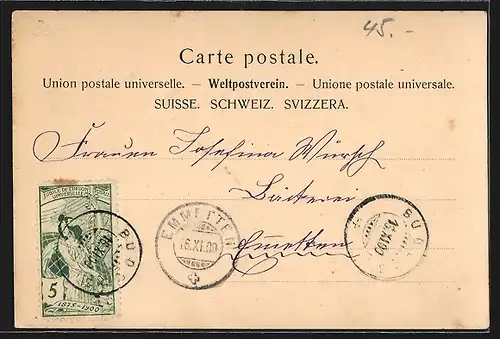 45.-
Carte postale.
Union postale universelle. — Weltpostverein. — Unione postale universale.
SUISSE. SCHWEIZ. SVIZZERA.
Frauen Josefina Würsch
Bäckerei
Emetten
JUBILÉ DE L'UNION
POSTALE UNIVERSELLE
5
1875-1900
BUOCHS
EMMETTEN
16.XI.00
BUOCHS
15.XI.00